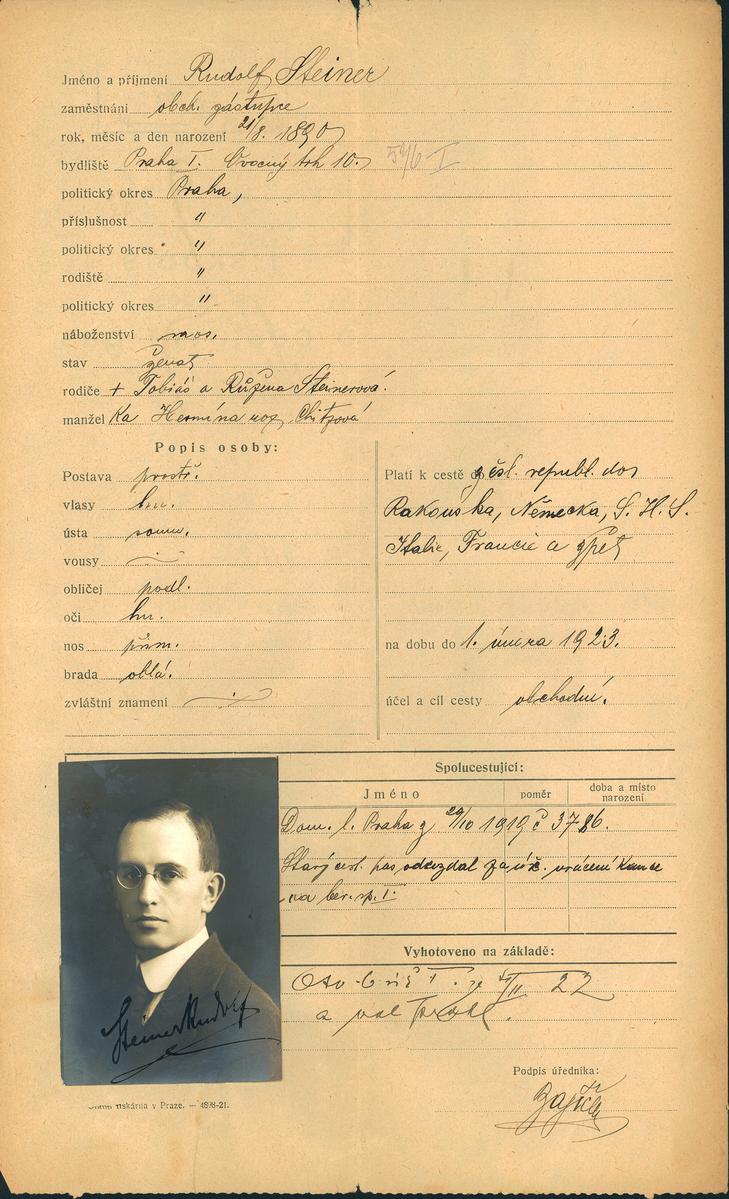 Jméno a příjmení Rudolf Steiner
zaměstnání obch. zástupce
rok, měsíc a den narození 21/8. 1890
bydliště Praha I. Ovocný trh 10. 596-I
politický okres Praha,
příslušnost "
politický okres "
rodiště "
politický okres "
náboženství mos.
stav ženat
rodiče + Tobiáš a Růžena Steinerová.
manžel ka Hermína roz.
Popis osoby:
Postava prostř.
vlasy hn.
ústa soum.
vousy
obličej podl.
oči hn.
nos přim.
brada oblá.
zvláštní znamení
Platí k cestě do čsl. republ. do
Rakouska, Německa, S. H. S.
Italie, Francie a zpět
na dobu do 1. února 1923.
účel a cíl cesty obchodní.
Spolucestující:
Jméno poměr doba a místo narození
Dom. l. Praha z 29/10 1919 č 3786.
Starý cest. pas odevzdal za úč. vrácení kauce
na ber. sp. I.
Vyhotoveno na základě:
22
a
Steiner Rudolf
Podpis úředníka:
tiskárna v Praze. — 4898-21.